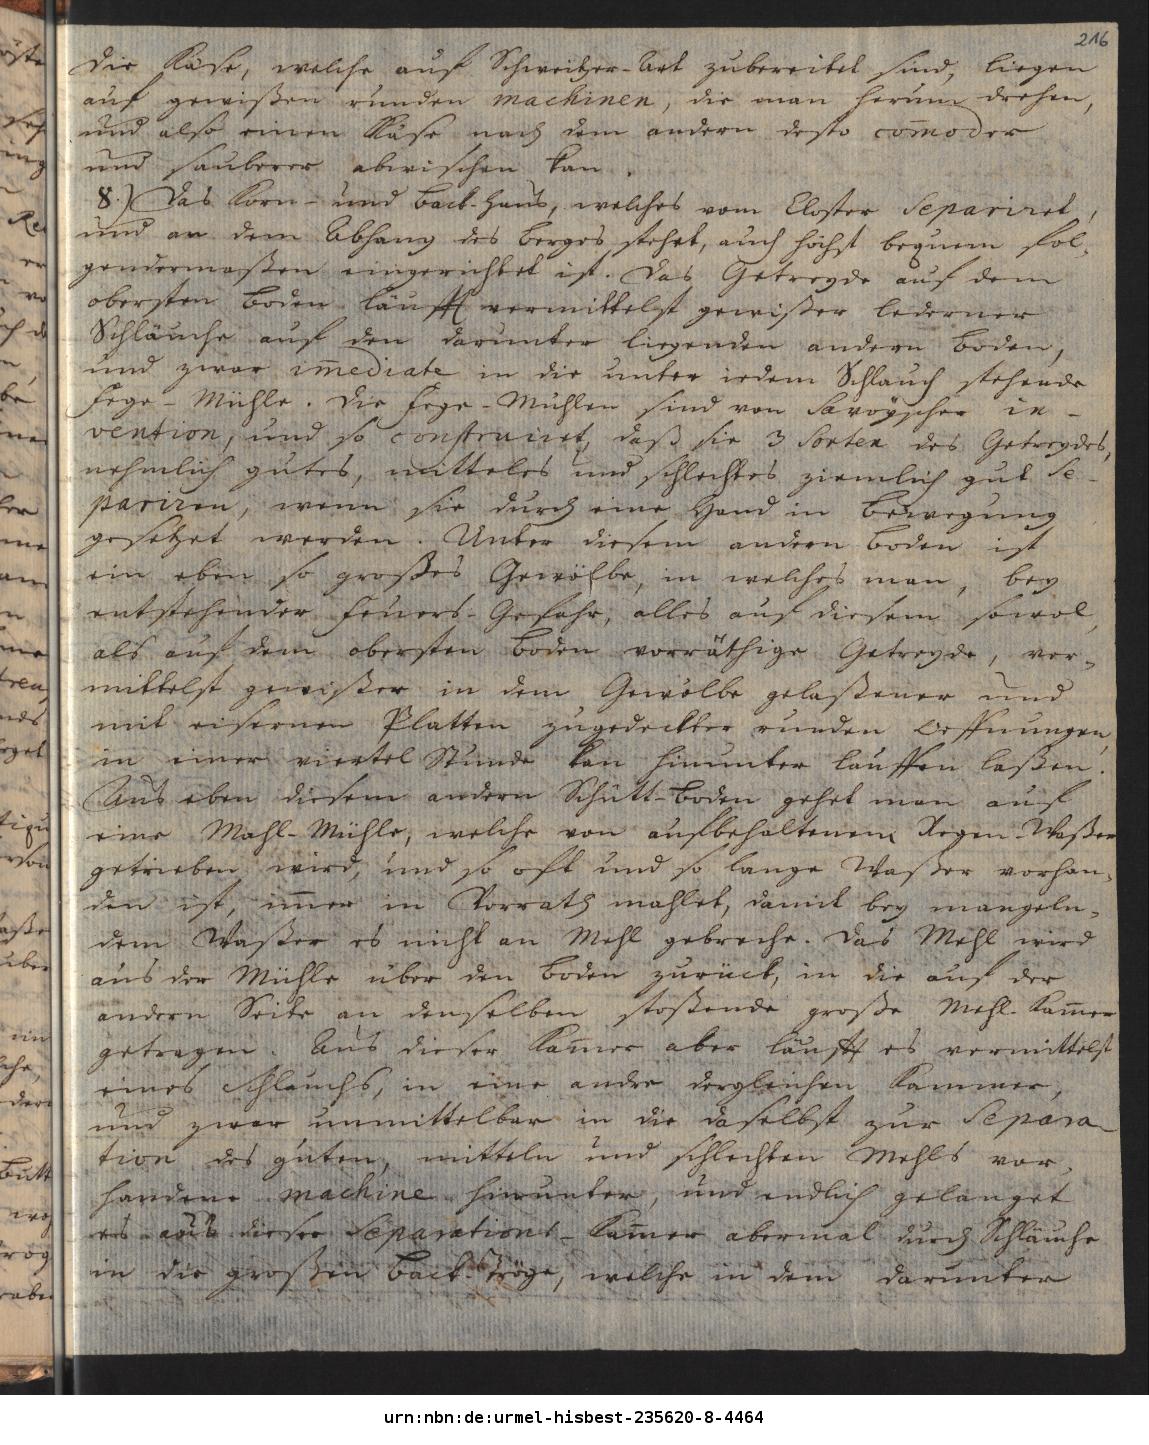 216
Die Käse, welche auf Schweitzer-Art zubereitet sind, liegen
auf gewißen runden machinen, die man herum drehen,
und also einen Käse nach dem andern desto com̄oder
und sauberer abwischen kan.
8.) Das Korn- und Back-Haus, welches vom Closter Separiret,
und an dem Abhang des Berges stehet, auch höchst bequem fol-
gendermaßen eingerichtet ist. Das Getreyde auf dem
obersten Boden läufft vermittelst gewißer lederner
Schläuche auf den darunter liegenden andern Boden,
und zwar im̄ediate in die unter iedem Schlauch stehende
Fege-Mühle. Die Fege-Mühlen sind von Savoyscher in-
vention, und so construiret, daß sie 3 Sorten des Getreydes,
nehmlich gutes, mitteles und schlechtes ziemlich gut Se-
pariren, wenn sie durch eine Hand in Bewegung
gesetzet werden. Unter diesem andern Boden ist
ein eben so großes Gewölbe, in welches man, bey
entstehender Feuers-Gefahr, alles auf diesem sowol,
als auf dem obersten Boden vorräthige Getreyde, ver-
mittelst gewißer in dem Gewölbe gelaßener und
mit eisernen Platten zugedeckter runden Oeffnungen,
in einer viertel Stunde kan hinunter lauffen laßen.
Aus eben diesem andern Schütt-Boden gehet man auf
eine Mahl-Mühle, welche von aufbehaltenem Regen-Waßer
getrieben wird, und so oft und so lange Waßer vorhan-
den ist, im̄er in Vorrath mahlet, damit bey mangeln-
dem Waßer es nicht an Mehl gebreche. Das Mehl wird
aus der Mühle über den Boden zurück, in die auf der
andern Seite an denselben stoßende große Mehl-Kam̄er
getragen. Aus dieser Kam̄er aber läufft es vermittelst
eines Schlauchs, in eine andre dergleichen Kammer,
und zwar unmittelbar in die daselbst zur Separa-
tion des guten, mitteln und schlechten Mehls vor-
handene machine hinunter, und endlich gelanget
es aus dieser Separations-Kam̄er abermal durch Schläuche
in die großen Back-Tröge, welche in dem darunter
urn:nbn:de:urmel-hisbest-235620-8-4464